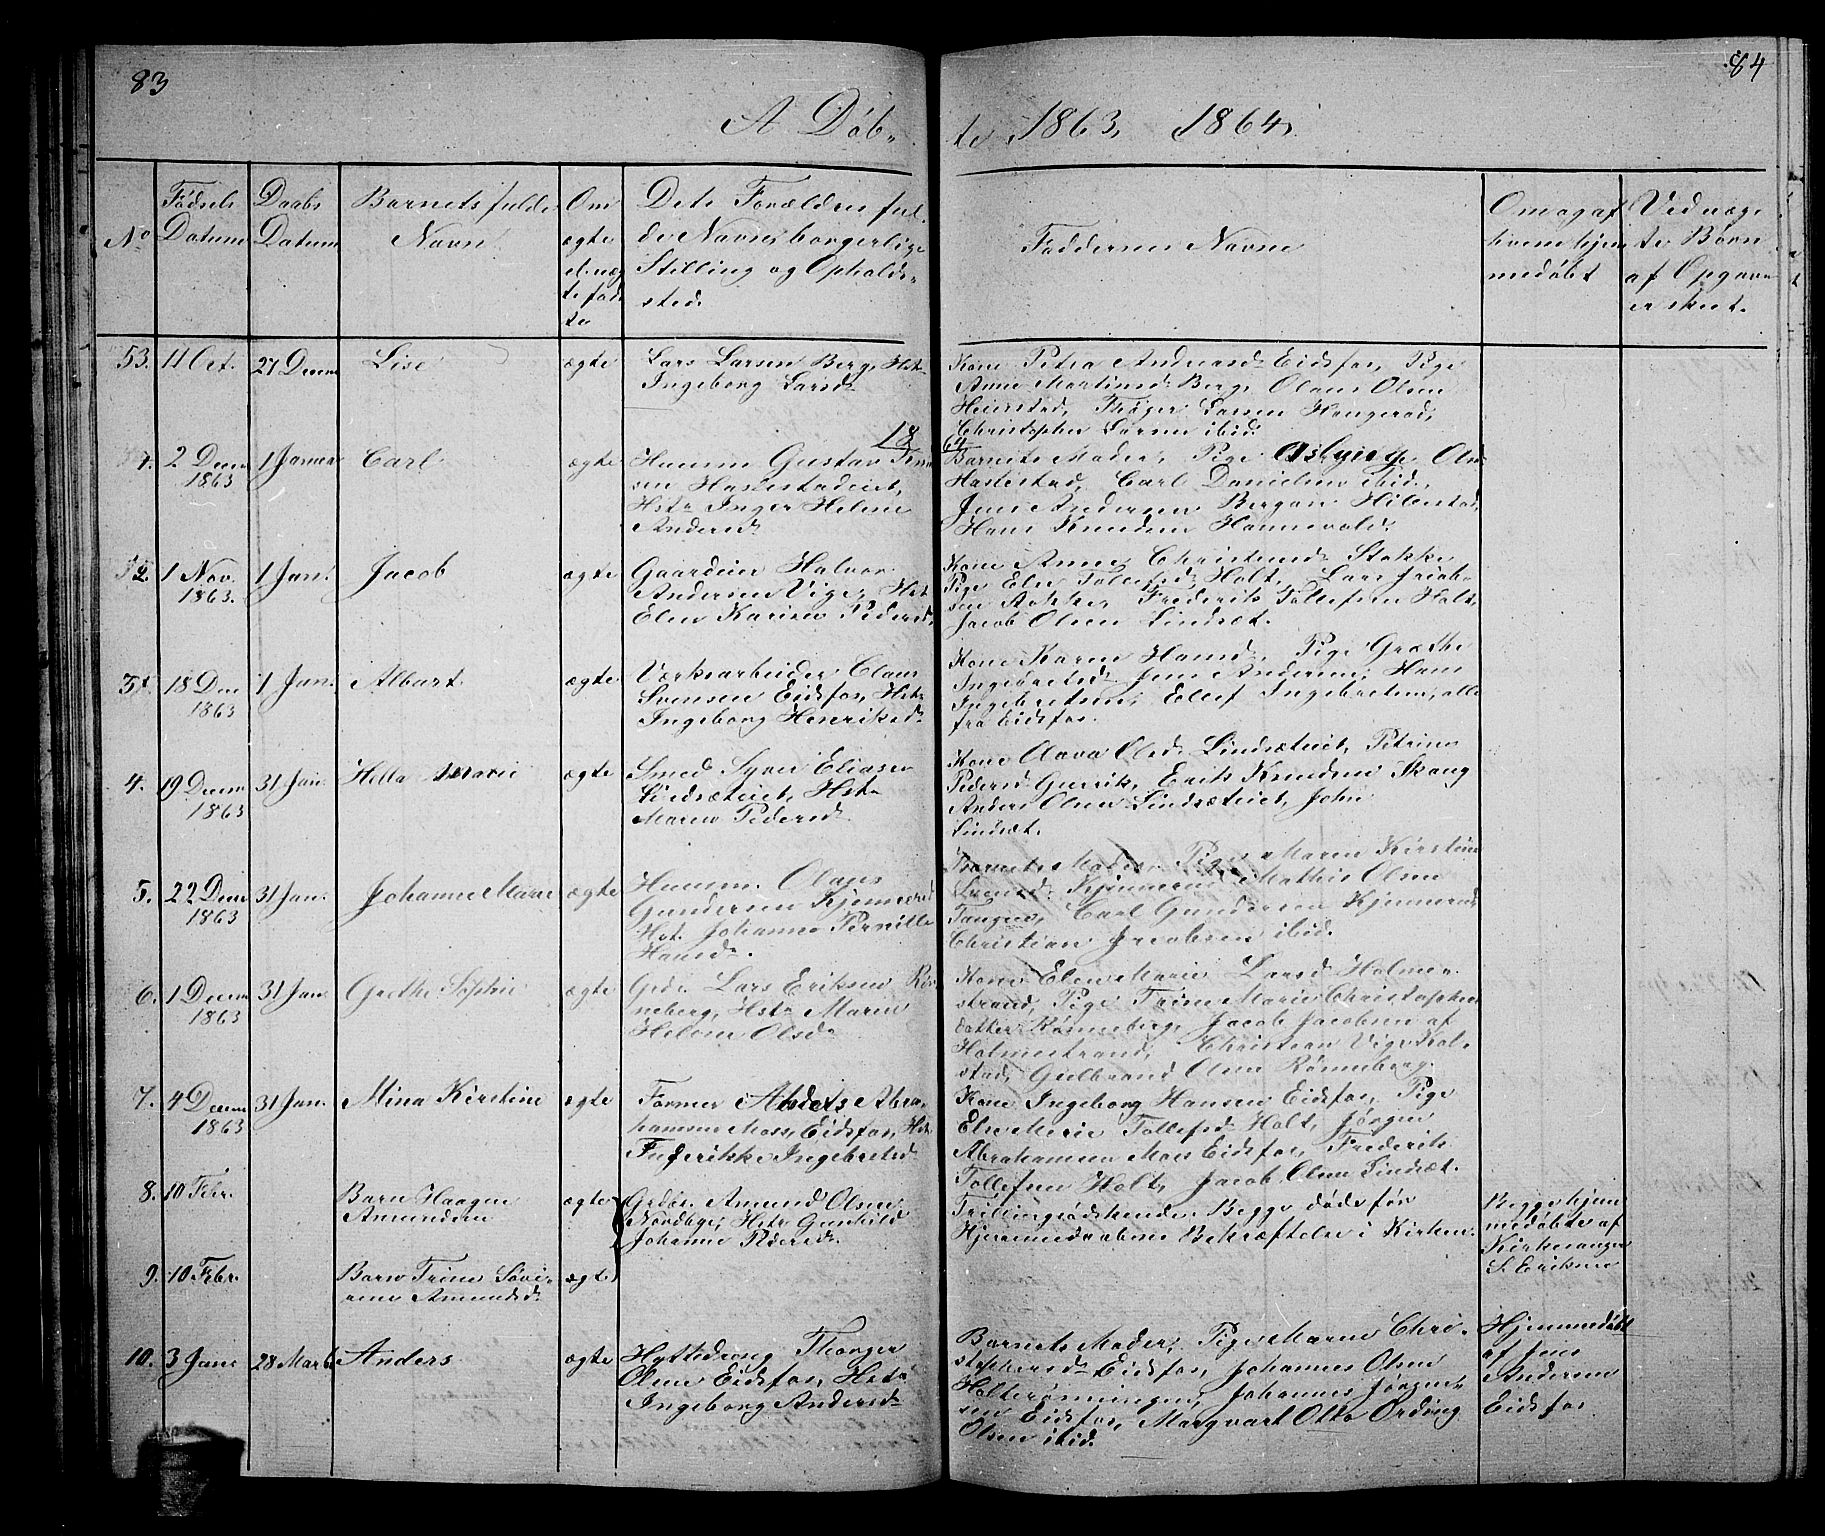 83
84
A Døb-
te 1863, 1864.
No
Fødsels Datum
Daabs Datum
Barnets fulde Navn
Om ægte el. uæg te fød te
Dets Forældres ful-
de Navn, borgerlige
Stilling og Opholds-
sted.
Faddernes Navne
Om og af hvem hjem medøbt
Ved uæg te Børn af Opgaven er skeet.
53. 11 Oct. 27 Decem Lise ægte
Lars Larsen Berg, Hst
Ingeborg Larsd
Kone Petra Andreasd Eidsfos, Pige
Anne Martinsd Berg, Olaus Olsen
Thøger Larsen Haugerød,
Christopher Larsen ibid.
1864
2 Decm 1863 1 Januar Carl ægte
Huusm Gustav Knud
sen Hastestadeiet,
Hstr Inger Helene
Andersd
Barnets Moder, Pige Olsd
Hastestad, Carl Danielsen ibid,
Jens Andersen Bergan
Hans Knudsen Hannevold.
2. 1 Nov. 1863. 1 Jan. Jacob ægte
Gaardeier Halvor
Andersen Viger, Hst
Elen Karine Pedersd,
Kone Anne Christensd Stokke,
Pige Else Tollefsd Holt, Lars Jacob-
sen Frederik Tollefsen Holt,
Jacob Olsen Lindsæt.
3. 18 Dec 1863 1 Jan. Albart ægte
Værksarbeider Claus
Svensen Eidsfos, Hstr
Ingeborg Henriksd
Kone Karen Hansd, Pige Grethe
Ingebretsd Jens Andersen, Hans
Ingebretsen, Ellef Ingebretsen, alle
fra Eidsfos.
4. 19 Decem 1863 31 Jan. Hella Marie ægte
Smed Syver Eliasen
Lindsæteiet, Hstr
Maren Pedersd
Kone Olsd Lindsæteiet, Petrine
Pedersd Erik Knudsen
Anders Olsen Lindsæteiet, John
Lindsæt.
5. 22 Decm 1863 31 Jan. Johanne Marie ægte
Huusm. Olaus
Gundersen Kjennerød
Hst. Johanne Pernille
Hansd.
Barnets Moder, Pige Maren Kirstine
Kjennerød Mathis Olsen
Tangen, Carl Gundersen Kjennerud,
Christian Jacobsen ibid.
6. 1 Decem 1863 31 Jan Grethe Sophie ægte
Gdr. Lars Eriksen Røn
neberg, Hstr Maren
Helene Olsd
Kone Elen Marie Larsd Holme-
strand, Pige Trine Marie Christophers
datter Rønneberg, Jacob Jacobsen af
Holmestrand, Christian
Gulbrand Olsen Rønneberg.
7. 4 Decem 1863 31 Jan. Mina Kirstine ægte
Former Abra
hamsen Moss, Eidsfos, Hst
Frederikke Ingebretsd
Kone Ingeborg Hansen Eidsfos, Pige
Else Marie Tollefsd Holt, Jørgen
Abrahamsen Mos Eidsfos, Frederik
Tollefsen Holt, Jacob Olsen Lindsæt.
8. 10 Febr. Barn Haagen
Amundsen ægte
Grdbr. Amund Olsen
Nordbye, Hstr Gunhild
Johanne Pedersd.
Trillingsødskende. Begge døde før
Hjemmedaabens Bekræftelse i Kirken.
Begge hjem
medøbte af
Kirkesanger
S. Eriksen
9. 10 Febr. Barn Trine Sevi-
rine Amundsd. ægte
10. 3 Jan 28 Marts Anders ægte
Hyttedreng Thorger
Olsen Eidsfos, Hstr
Ingeborg Andersd
Barnets Moder, Pige Maren Chri-
stophersd Eidsfos, Johannes Olsen
Holterønningen, Johannes Jørgen-
sen Eidsfos, Margvart Otto Ording
Olsen ibid.
Hjemmedøbt
af Jens
Andersen
Eidsfos